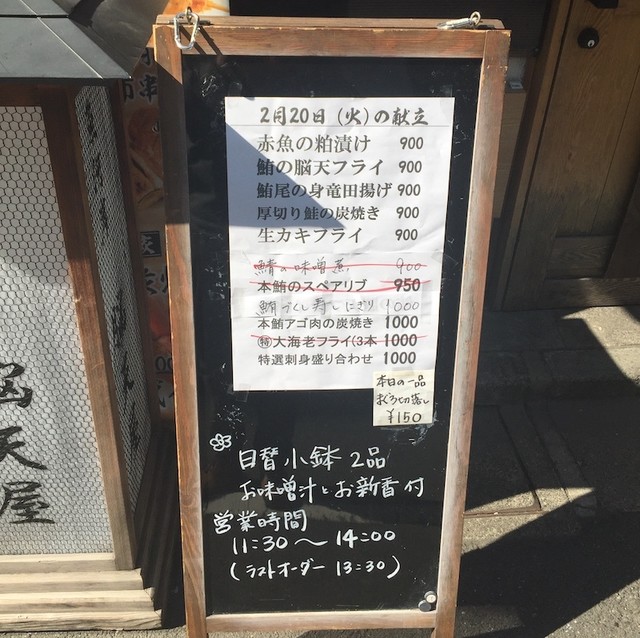 2月20日（火）の献立
赤魚の粕漬け 900
鮪の脳天フライ 900
鮪尾の身竜田揚げ 900
厚切り鮭の炭焼き 900
生カキフライ 900
鯖の味噌煮 900
本鮪のスペアリブ 950
鮪づくし寿しにぎり 1000
本鮪アゴ肉の炭焼き 1000
㊕大海老フライ(3本 1000
特選刺身盛り合わせ 1000
本日の一品
まぐろ切落し
¥150
日替小鉢 2品
お味噌汁とお新香付
営業時間
11:30〜14:00
(ラストオーダー 13:30)
天屋